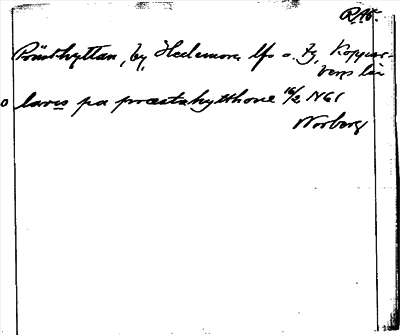 RAp.
Prästhyttan, by, Hedemora lfs o. tg, Koppar-
bergs län
o laurens pa præstahytthone 16/2 1461
Norberg